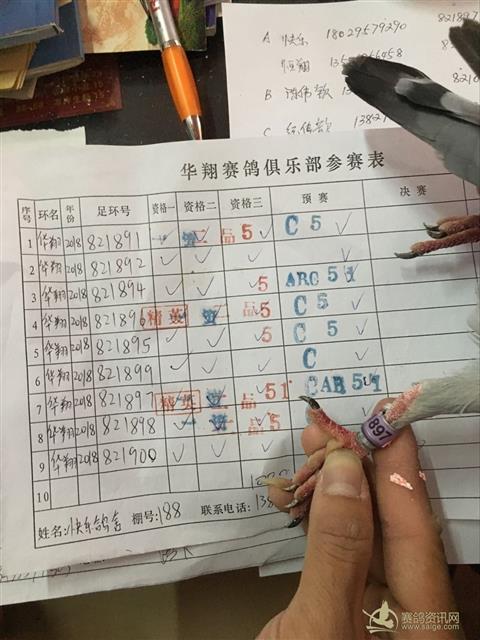 A 快乐 18029579290 82189
恒翔
B
C 13821
8210
华翔赛鸽俱乐部参赛表
序号 环名 年份 足环号 资格一 资格二 资格三 预赛 决赛
1 华翔 2018 821891 品 5 C 5
2 华翔 2018 821892
3 华翔 2018 821894 5 ABC 51
4 华翔 2018 821896 精英 5 C 5
5 华翔 2018 821895 5 C 5
6 华翔 2018 821899 C
7 华翔 2018 821897 精英 品 51 CAB 51
8 华翔 2018 821898 品 5
9 华翔 2018 821900
10
姓名:快乐鸽舍 棚号:188 联系电话:
897
赛鸽资讯网
www.saige.com